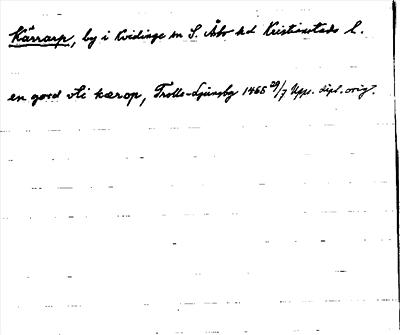 Kärrarp, by i Kvidinge sn S. Åsbo hd Kristianstads l.
en gord vti kærop, Trolle-Ljungby 1465 29/7 Upps. dipl. orig.